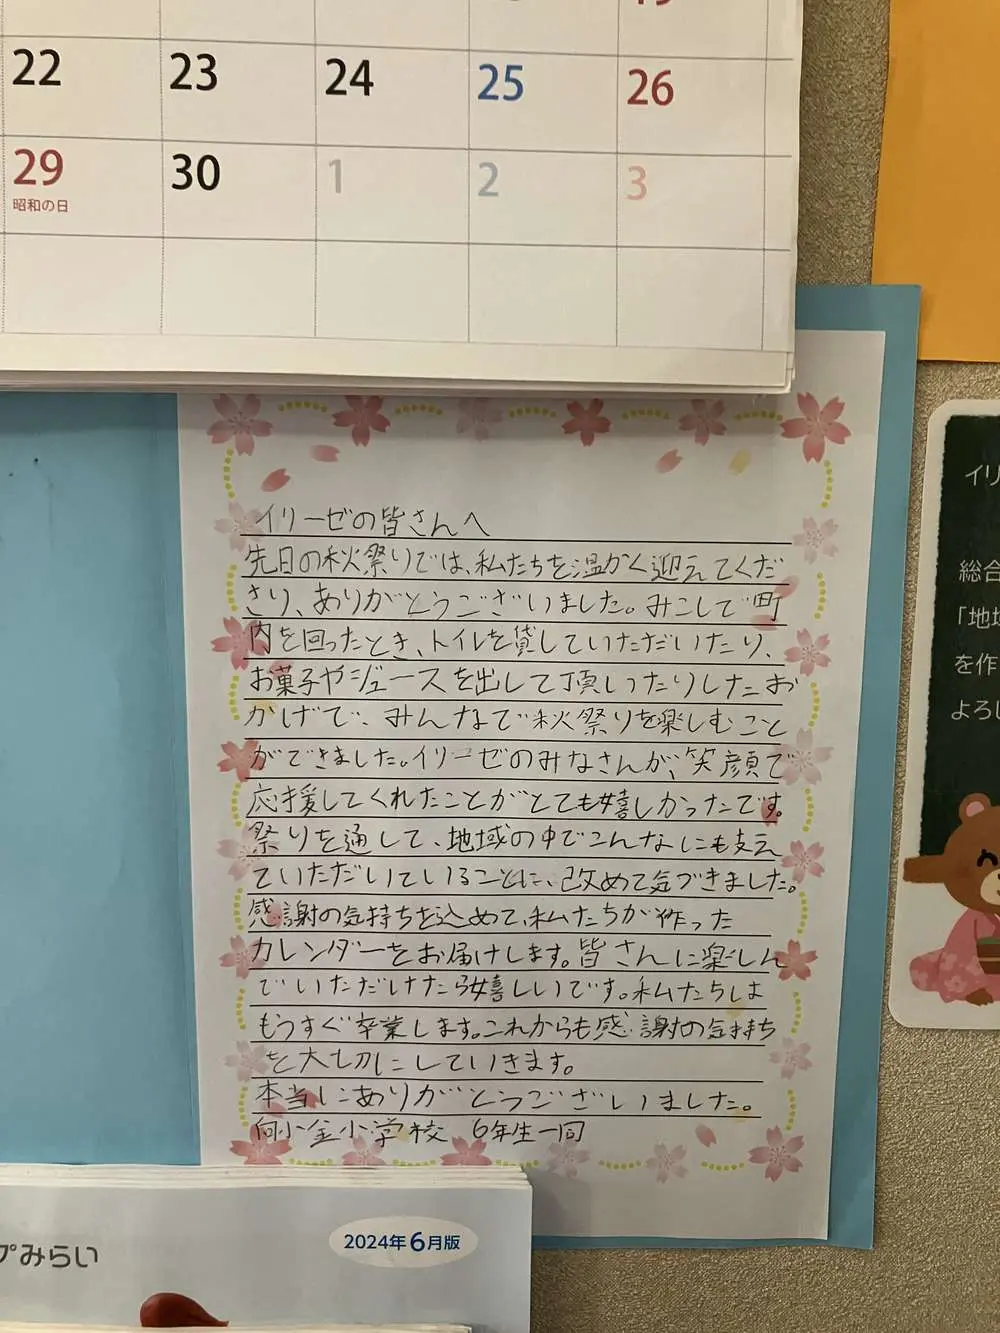 19
22 23 24 25 26
29 30 1 2 3
昭和の日
イリーゼの皆さんへ
先日の秋祭りでは、私たちを温かく迎えてくだ
さり、ありがとうございました。みこしで町
内を回ったとき、トイレを貸していただいたり、
お菓子やジュースを出して頂いたりしたお
かげで、みんなで秋祭りを楽しむこと
ができました。イリーゼのみなさんが、笑顔で
応援してくれたことがとても嬉しかったです。
祭りを通して、地域の中でこんなにも支え
ていただいていることに、改めて気づきました。
感謝の気持ちを込めて、私たちが作った
カレンダーをお届けします。皆さんに楽しん
でいただけたら嬉しいです。私たちは
もうすぐ卒業します。これからも感謝の気持ち
を大切にしていきます。
本当にありがとうございました。
向小金小学校 6年生一同
イリ
総合
「地域
を作
よろし
プみらい
2024年6月版